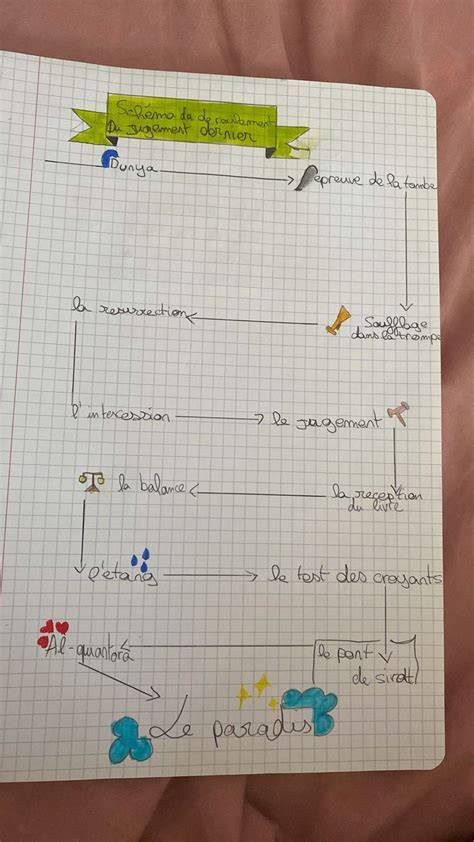 Schéma du de roulement
Du jugement dernier
Dunya
épreuve de la tombe
la resurrection
Soufflage
dans la trompe
l'intercession
le jugement
la balance
la reception
du livre
l'étang
le test des croyants
Al-quantorà
le pont
de sirat
Le paradis